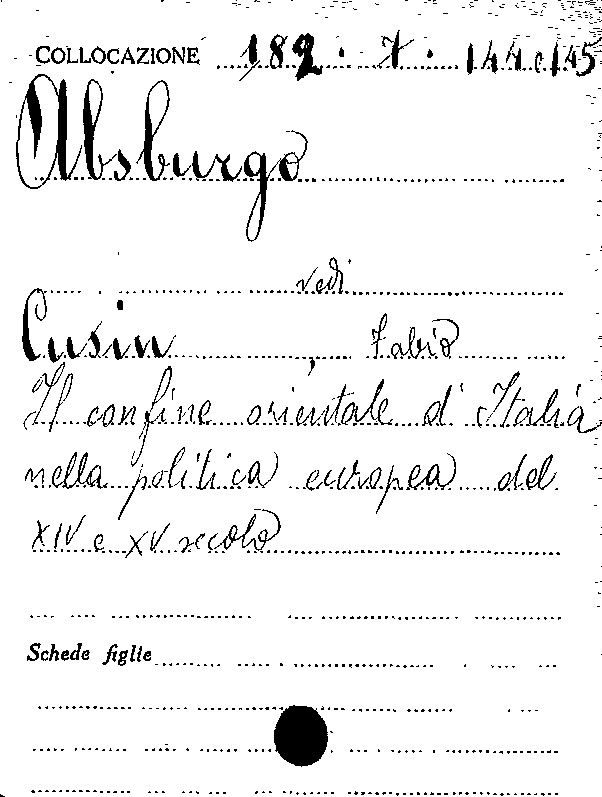 COLLOCAZIONE 182. 7. 144 e 145
Absburgo
vedi
Cusin, Fabio
Il confine orientale d'Italia
nella politica europea del
XIV e XV secolo
Schede figlie